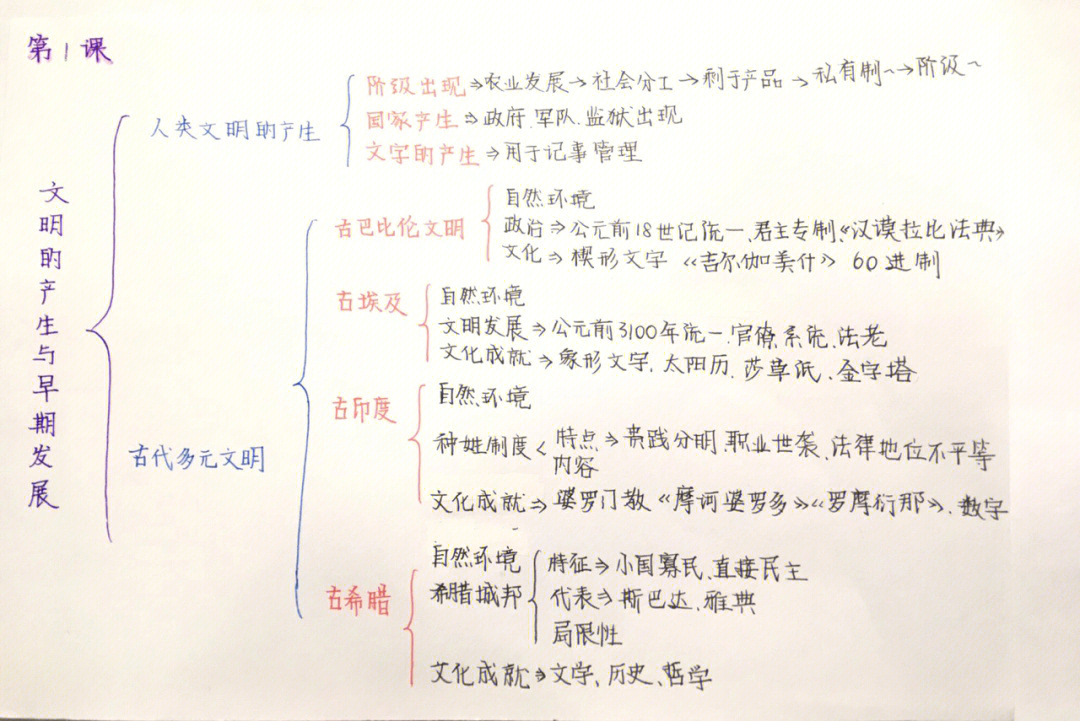 第1课
文明的产生与早期发展
人类文明的产生
阶级出现⇒农业发展→社会分工→剩于产品→私有制~→阶级~
国家产生⇒政府、军队、监狱出现
文字的产生⇒用于记事管理
古代多元文明
古巴比伦文明
自然环境
政治⇒公元前18世纪统一、君主专制、《汉谟拉比法典》
文化⇒楔形文字《吉尔伽美什》60进制
古埃及
自然环境
文明发展⇒公元前3100年统一、官僚系统、法老
文化成就⇒象形文字、太阳历、莎草纸、金字塔
古印度
自然环境
种姓制度<
特点⇒贵践分明、职业世袭、法律地位不平等
内容
文化成就⇒婆罗门教《摩诃婆罗多》《罗摩衍那》、数字
古希腊
自然环境
希腊城邦
特征⇒小国寡民、直接民主
代表⇒斯巴达、雅典
局限性
文化成就⇒文学、历史、哲学